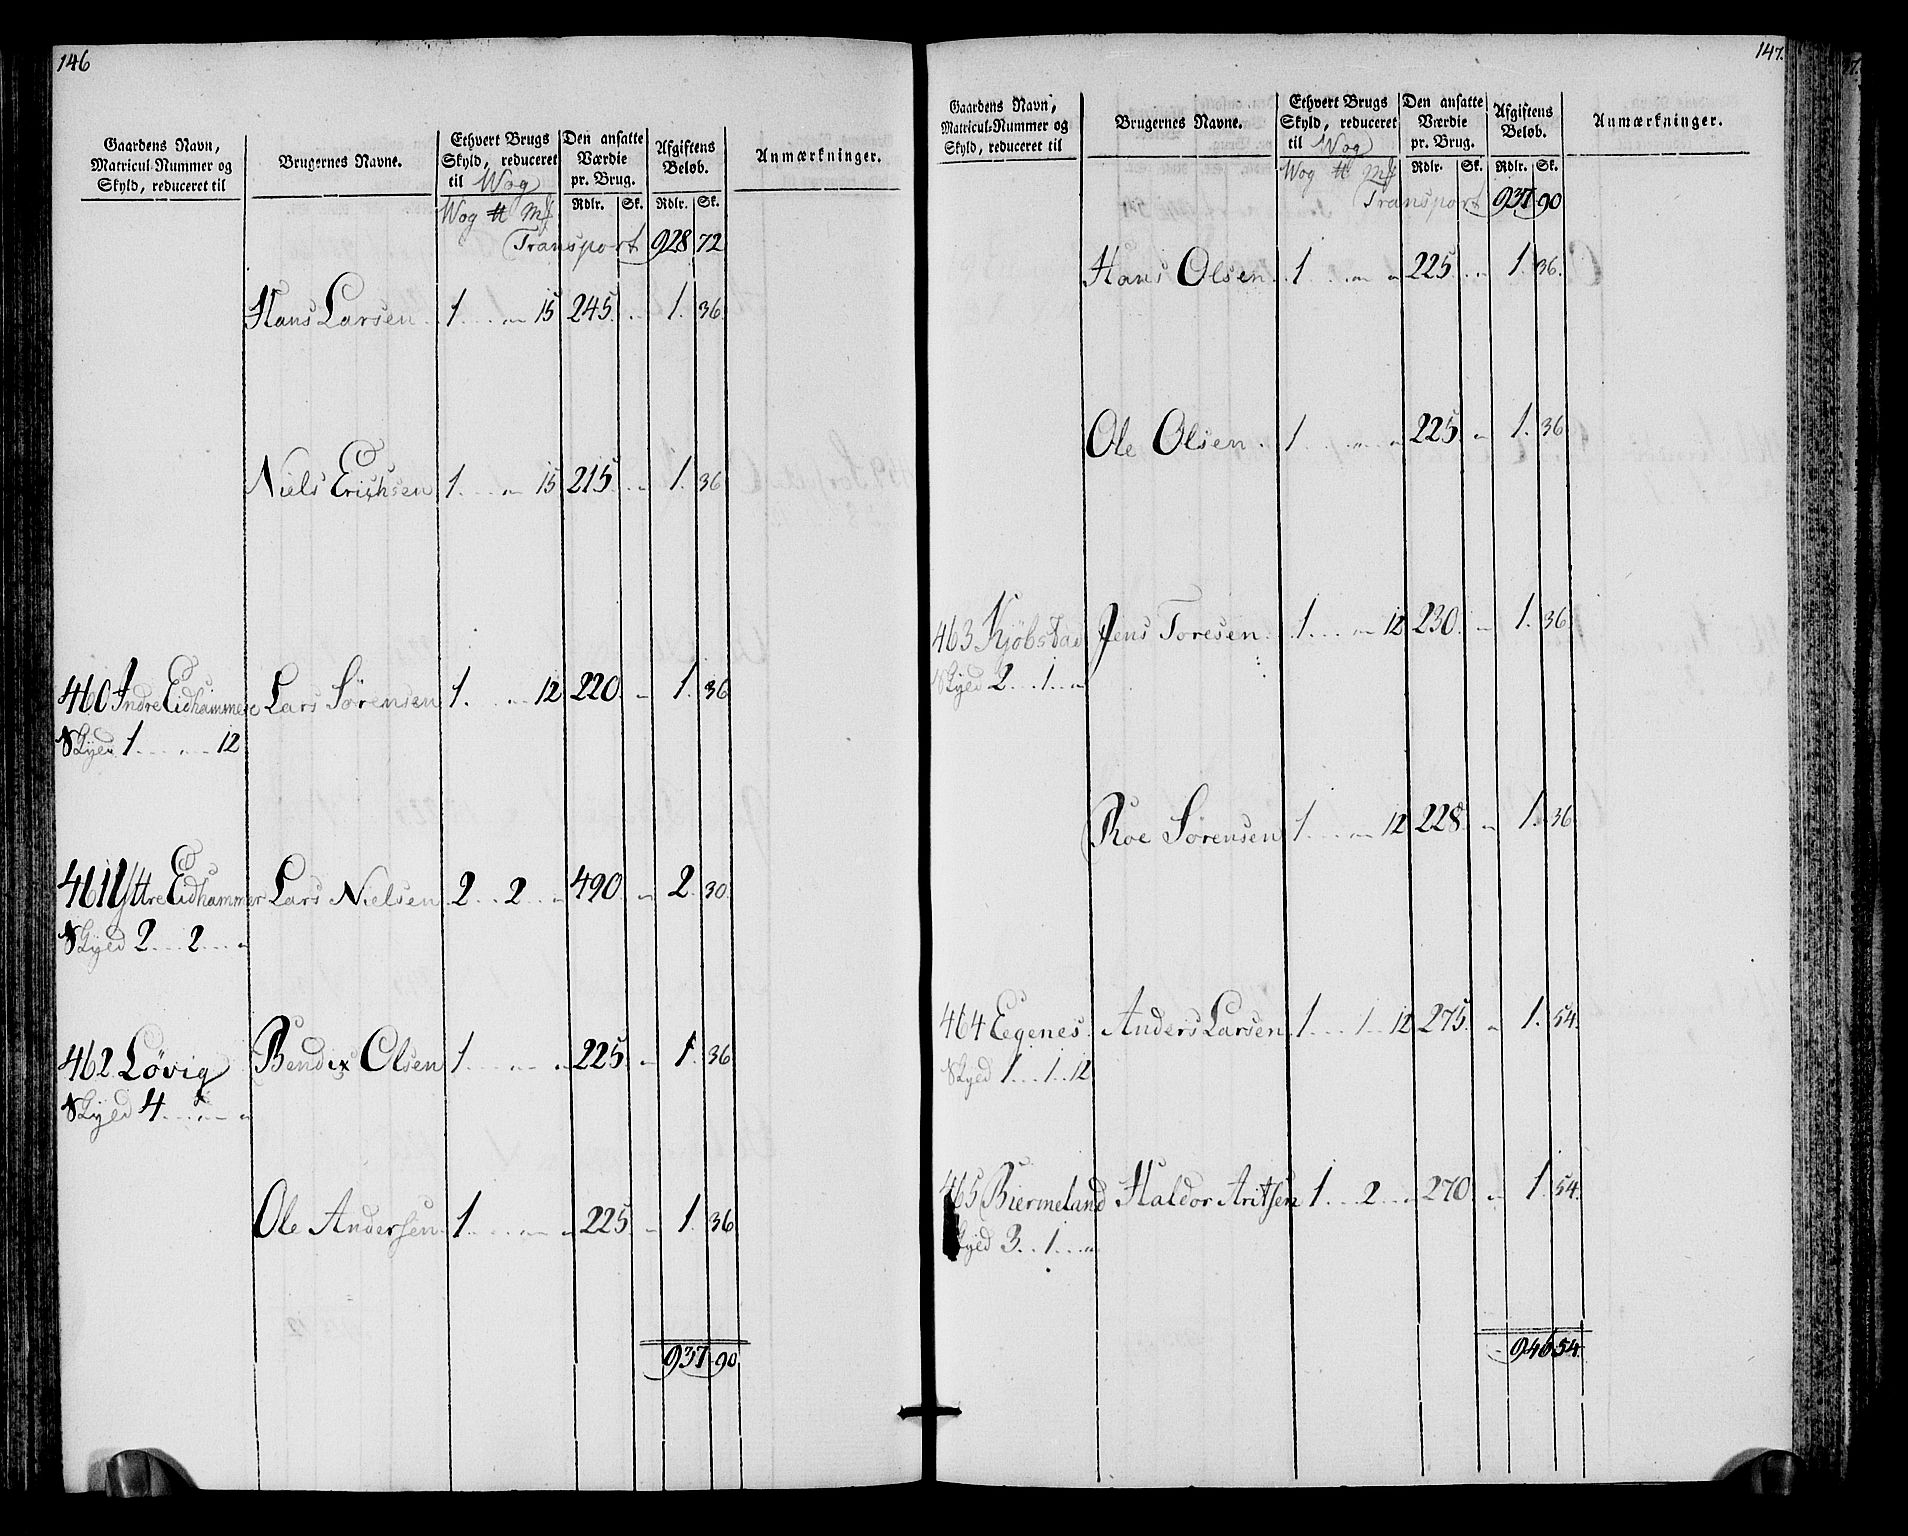 146
Gaardens Navn, Matricul-Nummer og Skyld, reduceret til | Brugernes Navne. | Ethvert Brugs Skyld, reduceret til Wog | Den ansatte Værdie pr. Brug. | Afgiftens Beløb. | Anmærkninger.
Wog ℔ Mℓ | Rdlr. Sk. | Rdlr. Sk.
Transport 928 72
Hans Larsen 1 . . „ 15 245 . . 1. 36.
Niels Erichsen 1 . . „ 15 215 . . „ 1. 36
460 Indre Eidhammer Lars Sørensen 1. . . „ 12 220. „ 1. 36
Skyld 1 . . „ . . 12
461 Yttre Eidhammer Lars Nielsen 2 . . 2 . . „ 490. „ 2. 30.
Skyld 2 . . 2 . . „
462 Løvig Bendix Olsen 1 . . „ . . „ 225. „ 1. 36
Skyld 4 . . „ . . „
Ole Andersen 1 . . „ . . „ 225. „ 1. 36
937 90
147.
Gaardens Navn, Matricul-Nummer og Skyld, reduceret til | Brugernes Navne. | Ethvert Brugs Skyld, reduceret til Wog | Den ansatte Værdie pr. Brug. | Afgiftens Beløb. | Anmærkninger.
Wog ℔ Mℓ | Rdlr. Sk. | Rdlr. Sk.
Transport 937 90
Hans Olsen 1 . . „ „ 225. . „ 1. 36.
Ole Olsen . 1 . . „ . . „ 225. „ 1. 36
463 Kjöbstad Jens Toresen . 1 . . „ 12 230. „ 1. 36.
Skyld 2 . . 1 . . „
Roe Sørensen 1 . . „ 12 228. „ 1. 36
464 Eegenes. Anders Larsen 1 . . 1 . . 12 275. „ 1. 54.
Skyld 1 . . 1 . . 12
465 Biermeland Haldor Aritsen 1 . . 2 . . „ 270 „ 1. 54.
Skyld 3 . . 1 . . „
946 54